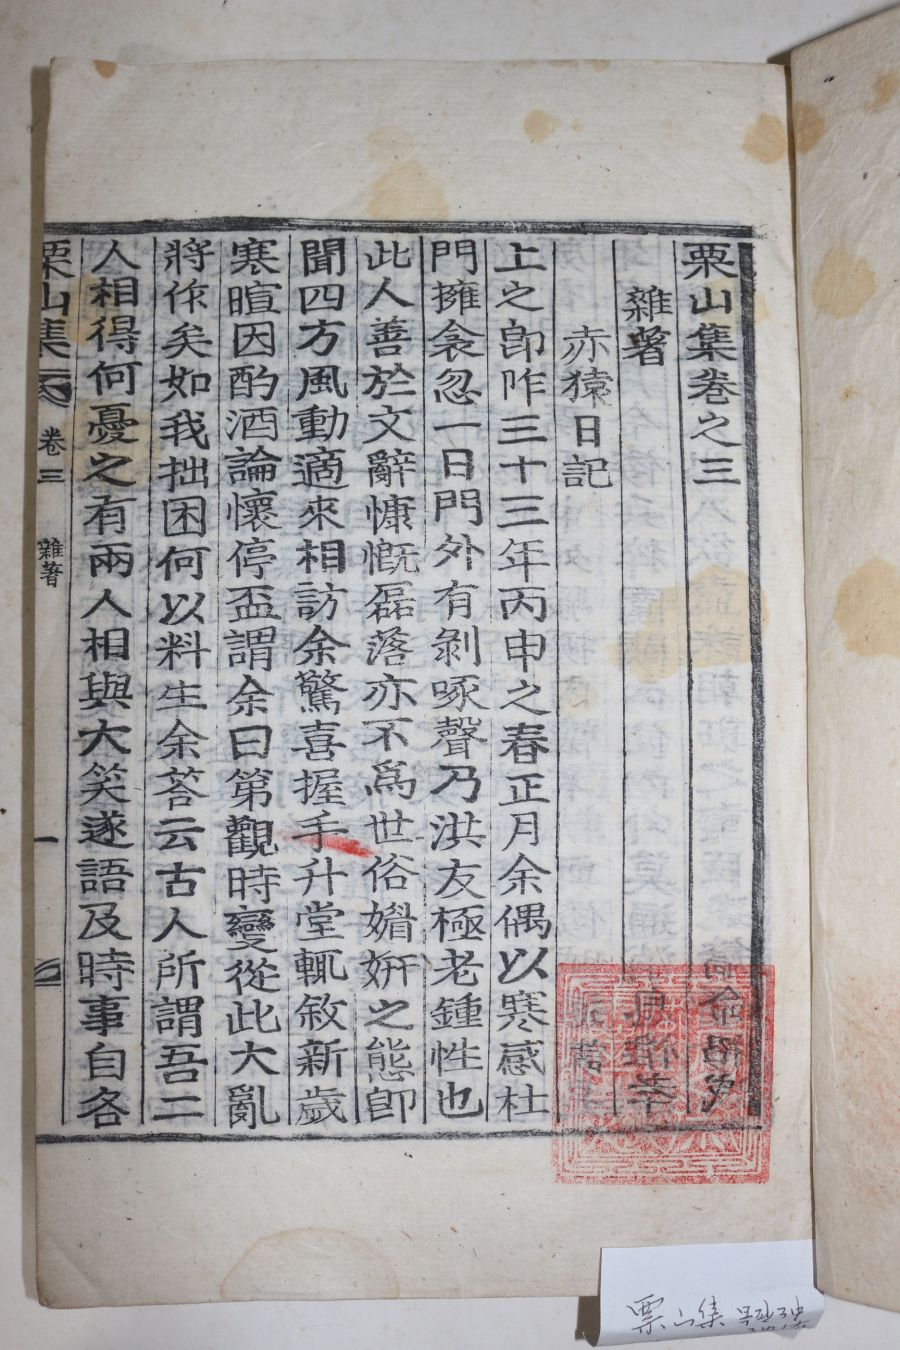 栗山集卷之三
雜著
赤猿日記
上之卽阼三十三年丙申之春正月余偶以寒感杜
門擁衾忽一日門外有剝啄聲乃洪友極老鍾性也
此人善於文辭慷慨磊落亦不爲世俗媚姸之態卽
聞四方風動適來相訪余驚喜握手升堂輒敘新歲
寒暄因酌酒論懷停盃謂余曰第觀時變從此大亂
將作矣如我拙困何以料生余荅云古人所謂吾二
人相得何憂之有兩人相與大笑遂語及時事自各
栗山集 卷三 雜著 一
栗山集